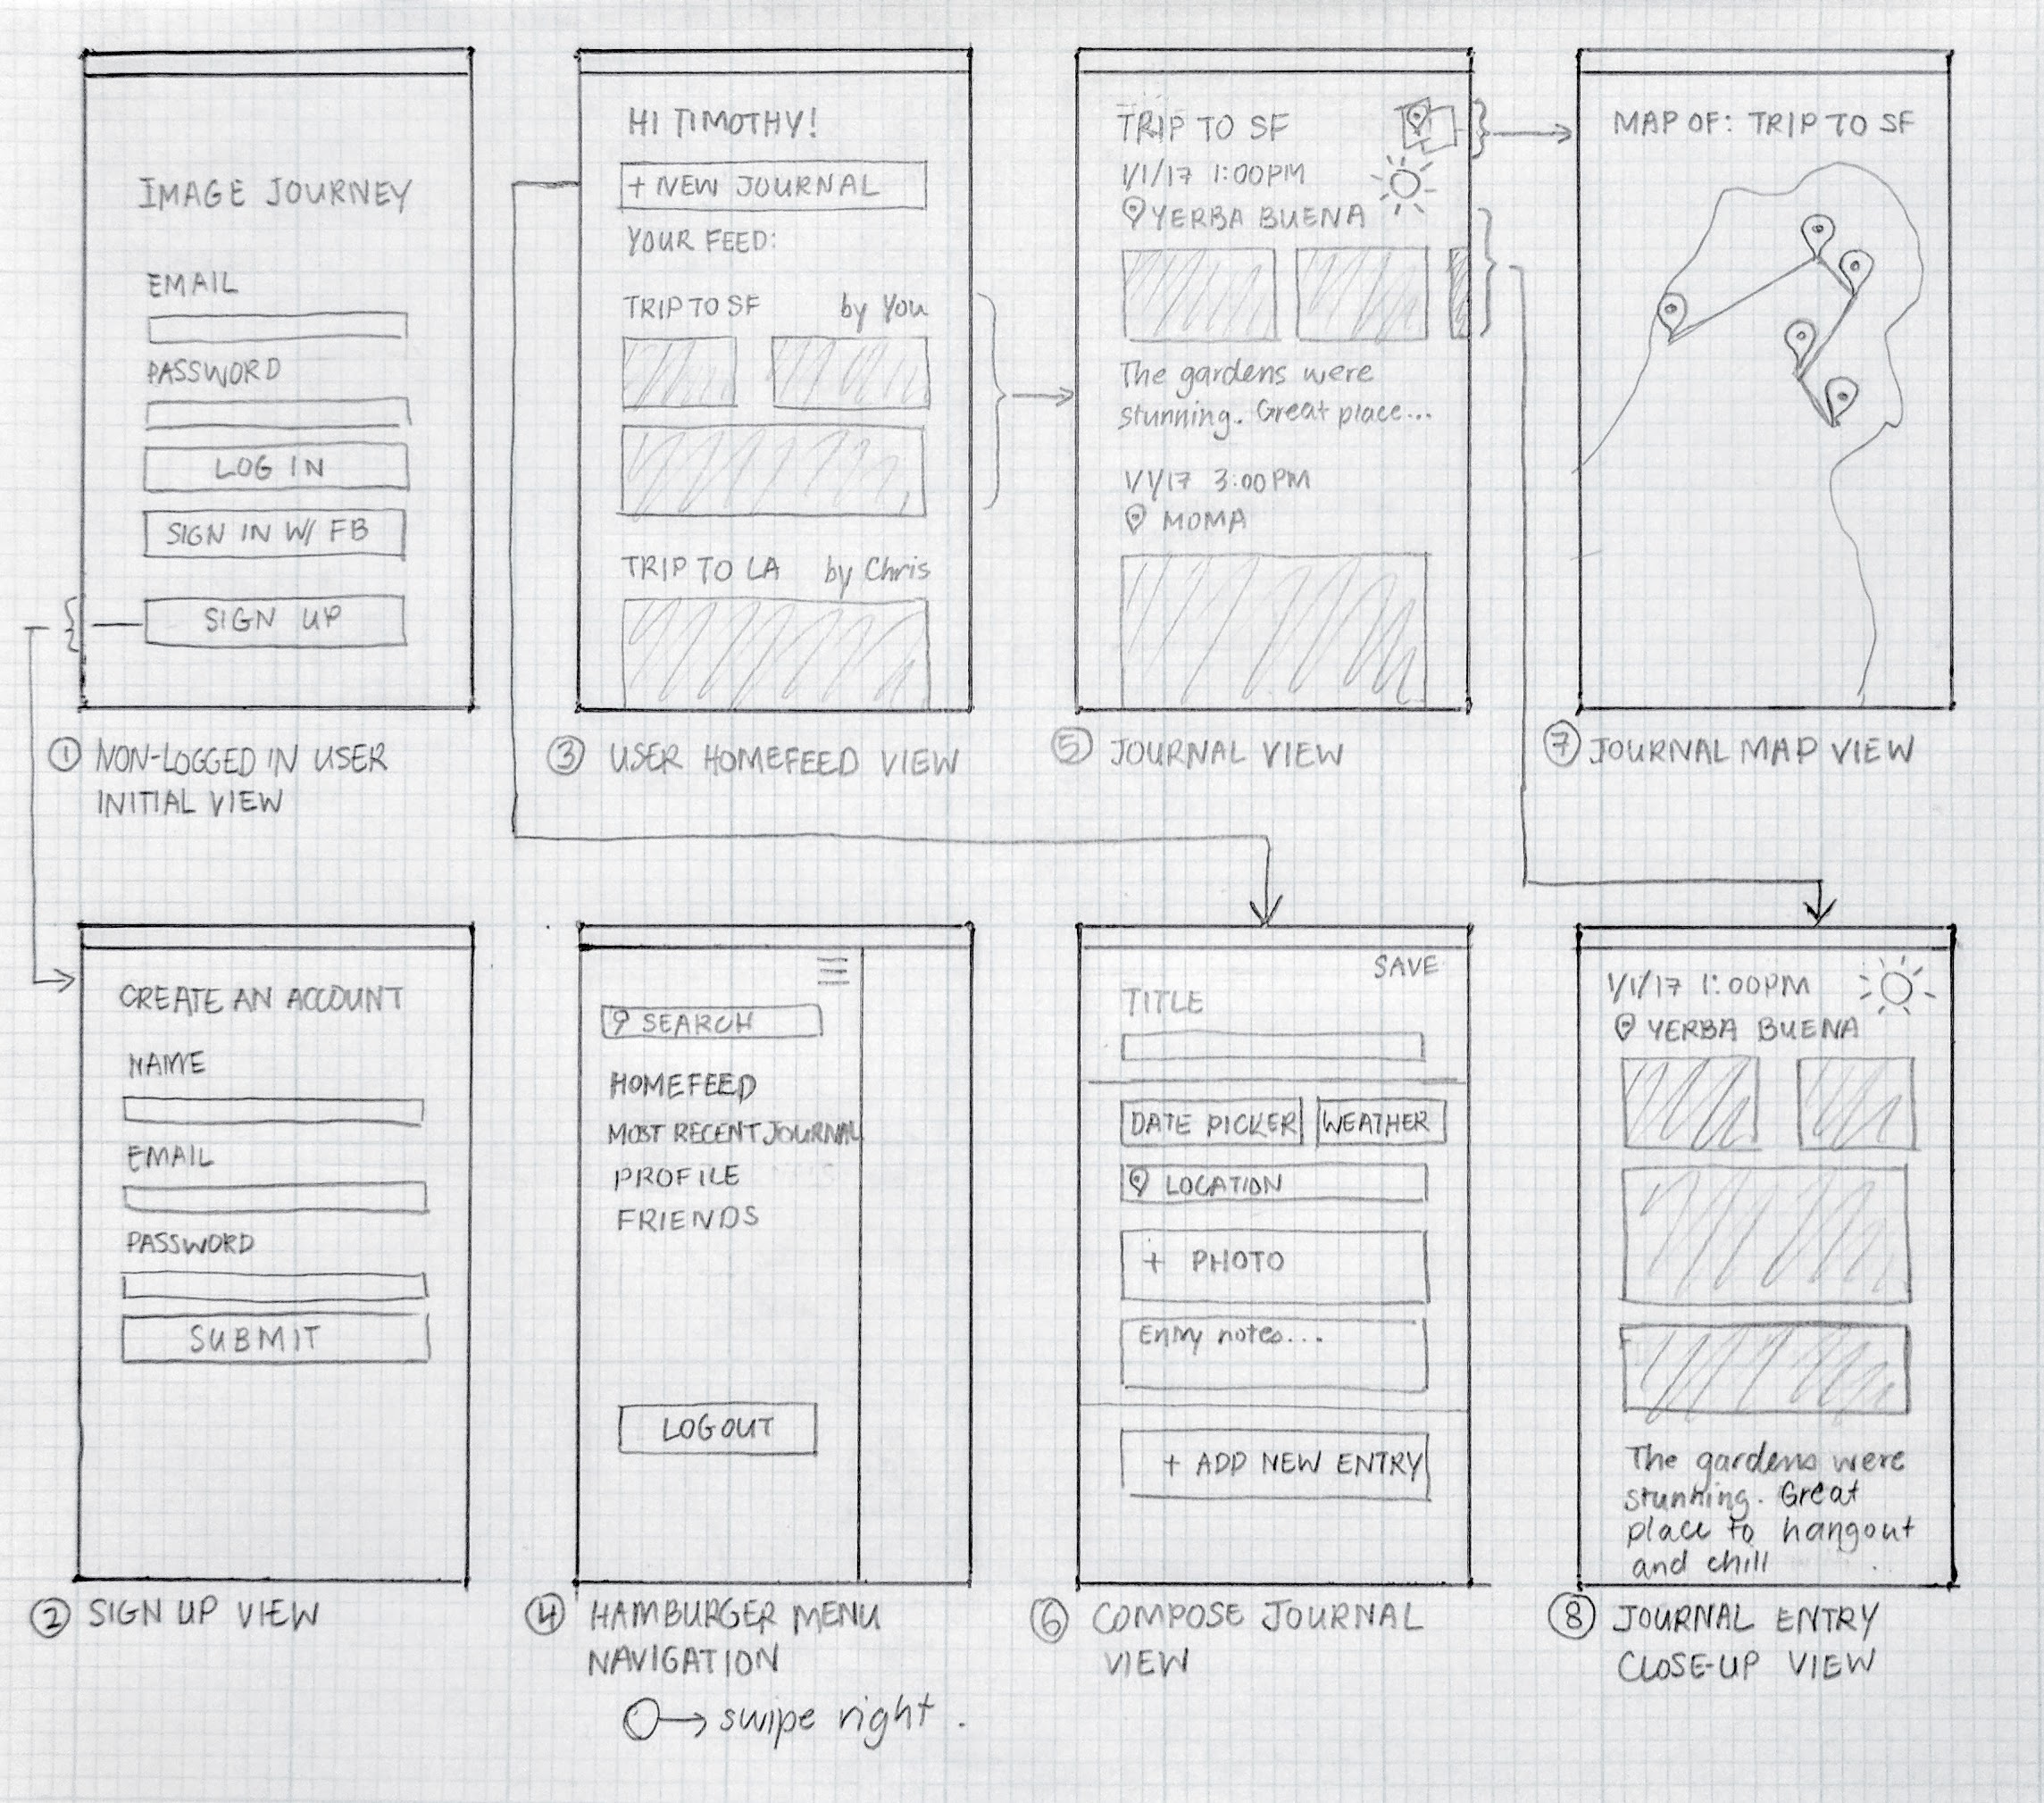 IMAGE JOURNEY
EMAIL
PASSWORD
LOG IN
SIGN IN W/ FB
SIGN UP
① NON-LOGGED IN USER
INITIAL VIEW
HI TIMOTHY!
+ NEW JOURNAL
YOUR FEED:
TRIP TO SF by You
TRIP TO LA by Chris
③ USER HOMEFEED VIEW
TRIP TO SF
1/1/17 1:00PM
YERBA BUENA
The gardens were
stunning. Great place...
1/1/17 3:00PM
MOMA
⑤ JOURNAL VIEW
MAP OF: TRIP TO SF
⑦ JOURNAL MAP VIEW
CREATE AN ACCOUNT
NAME
EMAIL
PASSWORD
SUBMIT
② SIGN UP VIEW
SEARCH
HOMEFEED
MOST RECENT JOURNAL
PROFILE
FRIENDS
LOGOUT
④ HAMBURGER MENU
NAVIGATION
→ swipe right.
SAVE
TITLE
DATE PICKER WEATHER
LOCATION
+ PHOTO
Entry notes...
+ ADD NEW ENTRY
⑥ COMPOSE JOURNAL
VIEW
1/1/17 1:00PM
YERBA BUENA
The gardens were
stunning. Great
place to hangout
and chill
⑧ JOURNAL ENTRY
CLOSE-UP VIEW